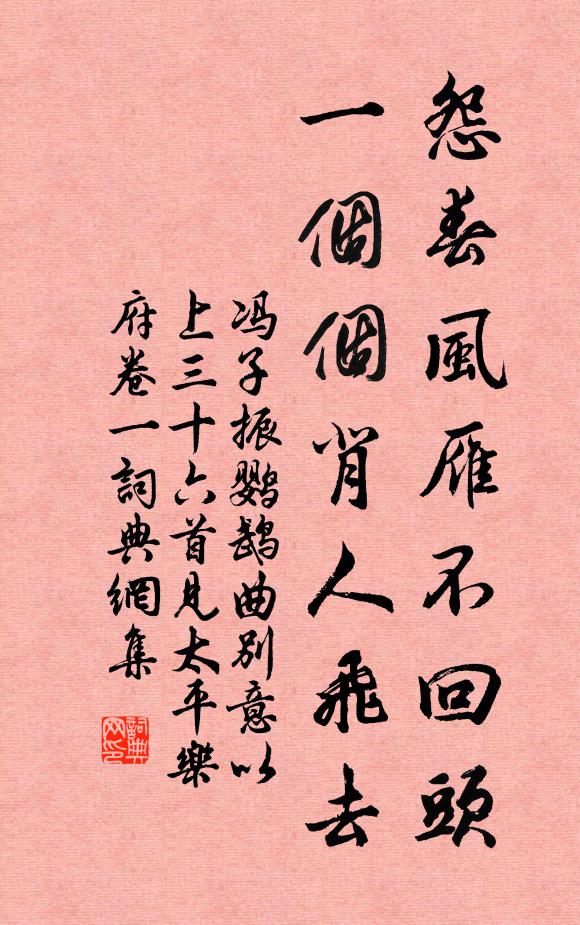 怨春風雁不回頭
一個個背人飛去
冯子振鹦鹉曲别意以
上三十六首見太平樂
府卷一詞典網集
詞典网印